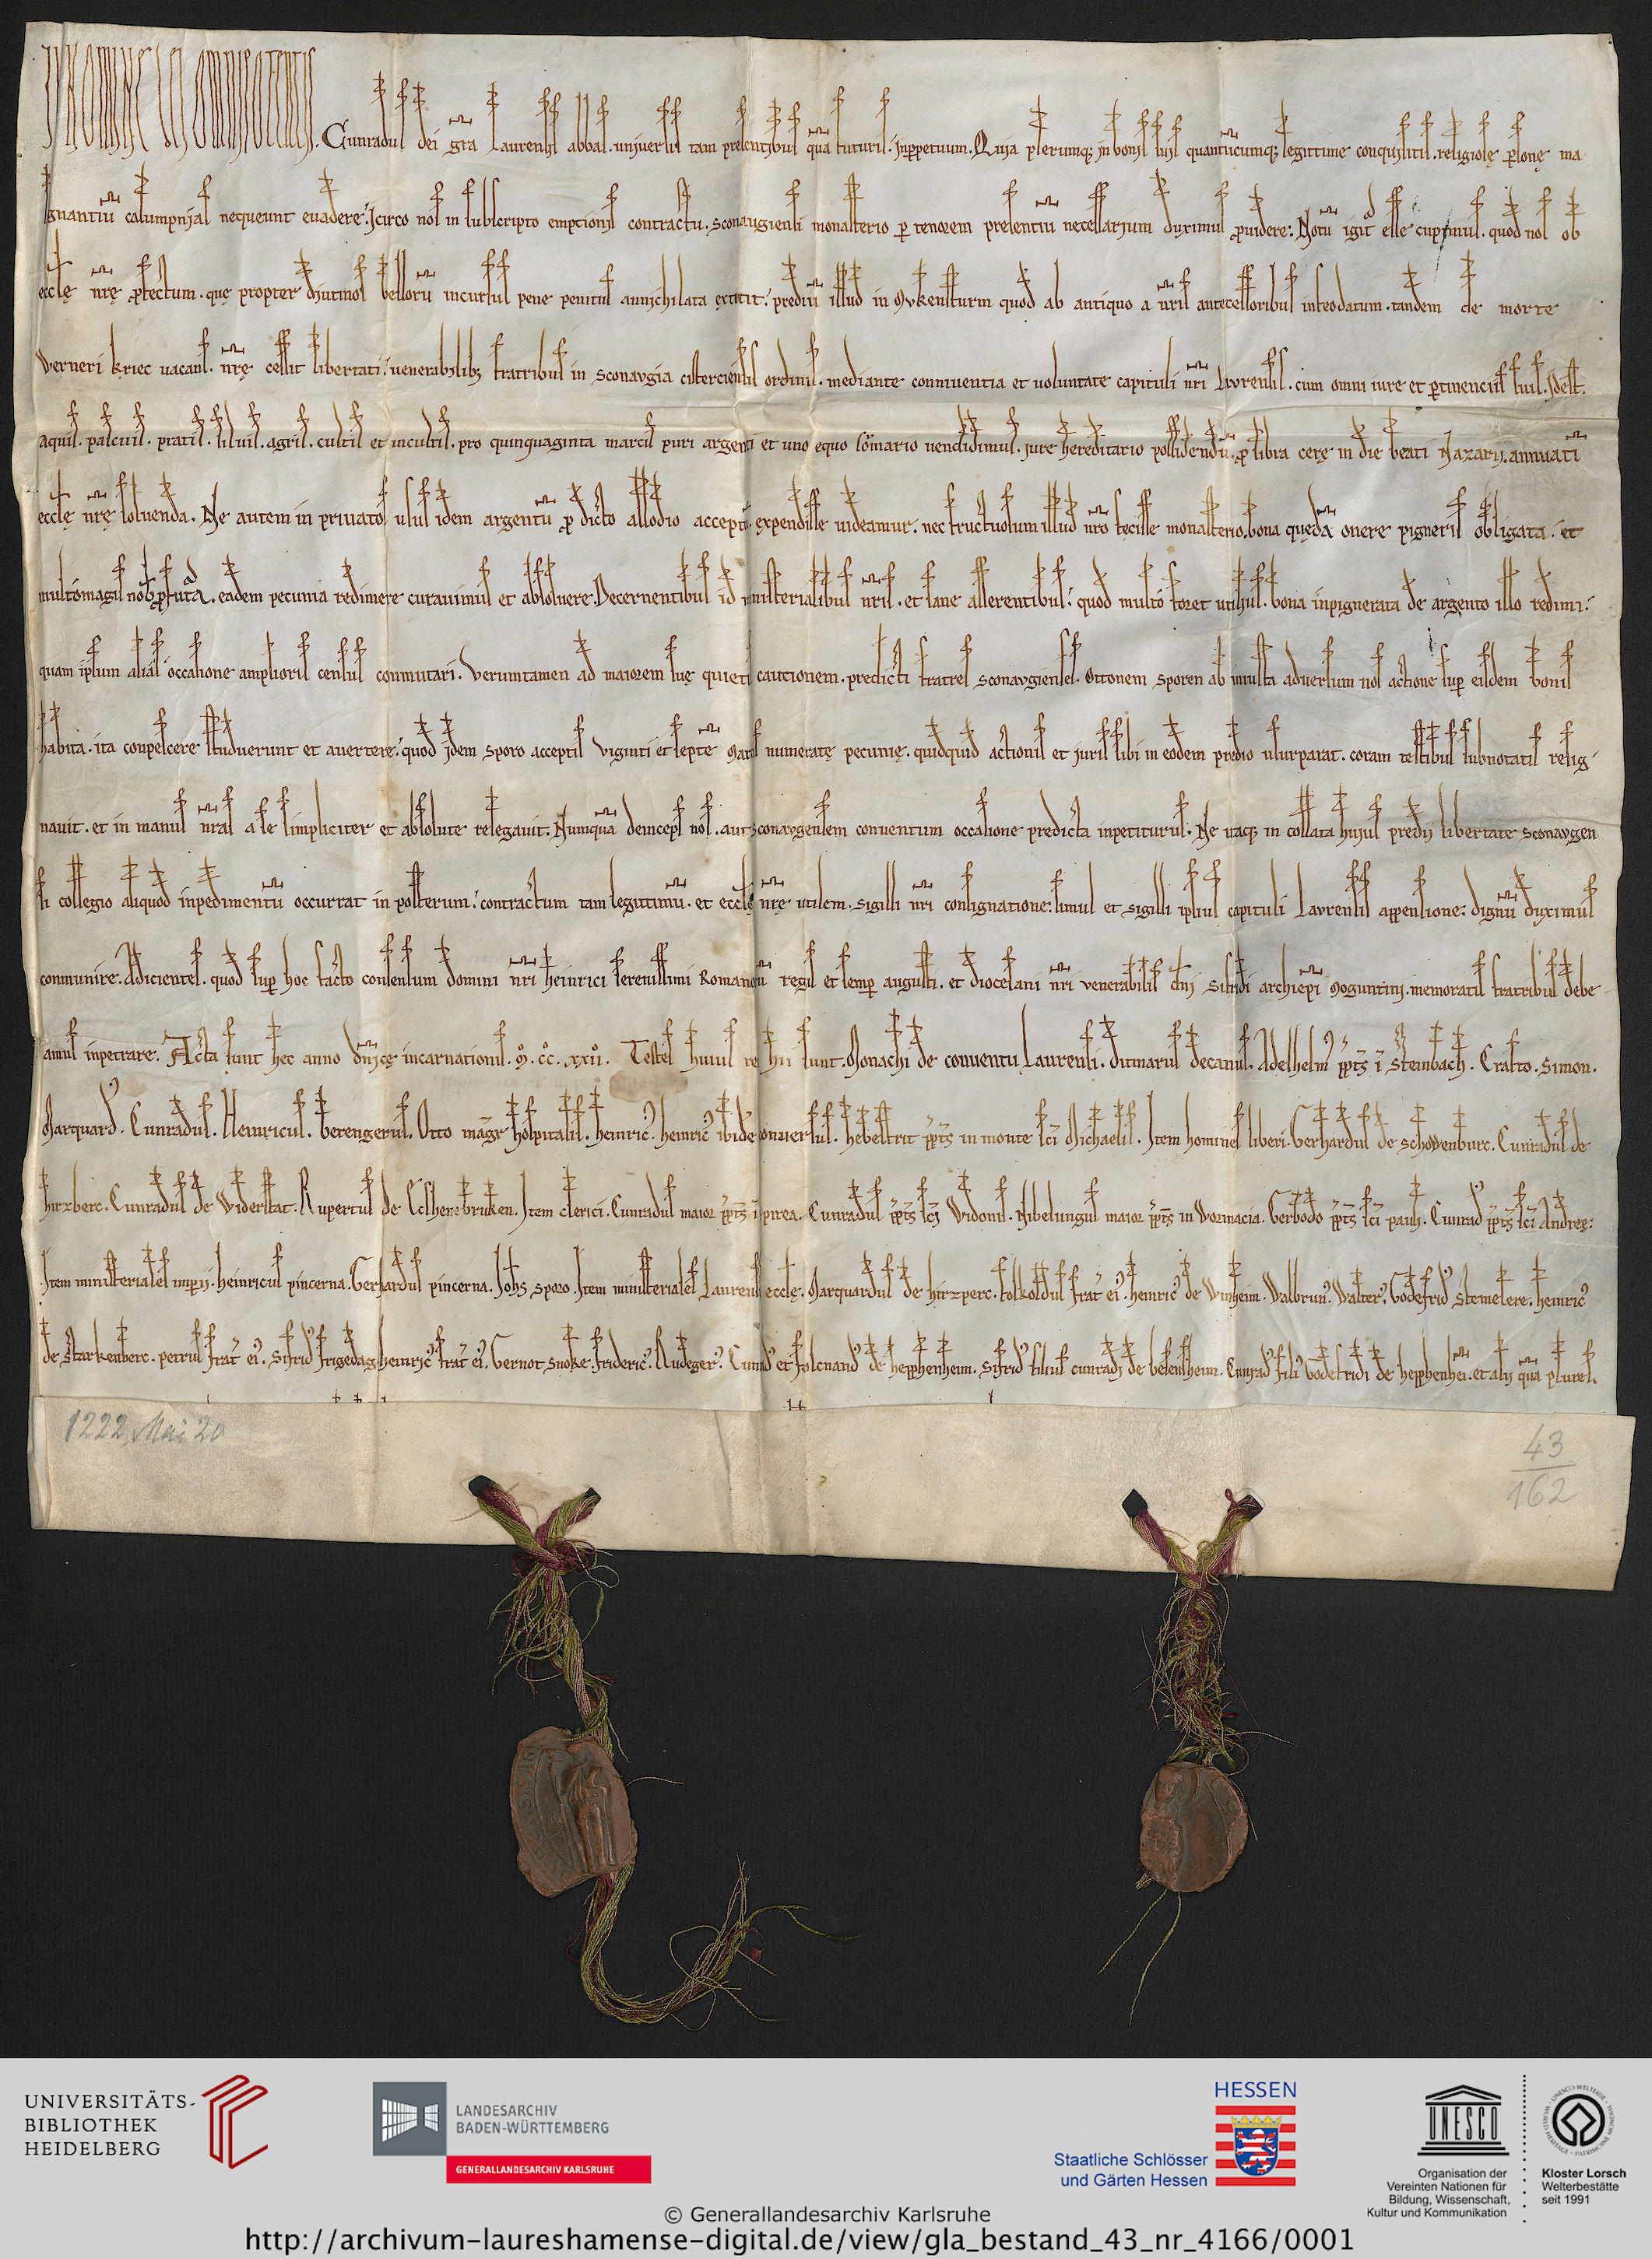 IN NOMINE DEI OMNIPOTENTIS. Cunradus dei gra Laurensis abbas. universis tam presentibus qua futuris. Inperpetuum. Quia plerumq; in bonis suis quantucumq; legittime conquisitis. religiose persone ma
gnantiu calumpnias nequeunt evadere. Jcirco nos in subscripto emptionis contractu. sconaugiensi monasterio p tenorem presentiu necessarium duximus providere. Notu igit esse cupimus. quod nos ob
eccle nre pfectum. que propter diutinos belloru incursus pene penitus annichilata extitit. prediu illud in Mvkensturm quod ab antiquo a nris antecessoribus infeodatum. tandem de morte
verneri kriec vacans. nre cessit libertati. venerabilib; fratribus in sconavgia cisterciensis ordinis. mediante connuentia et voluntate capituli nri Lavrensis. cum omni iure et ptinenciis suis. Idest.
aquis. pascuis. pratis. silvis. agris. cultis et incultis. pro quinquaginta marcis puri argenti et uno equo somario vendidimus. jure hereditario possidendu. p libra cere in die beati Nazarij. annuati
eccle nre solvenda. Ne autem in privatos usus idem argentu p dicto allodio acceptu expendisse videamur. nec fructuosum illud nro fecisse monasterio. bona queda onere pigneris obligata. et
multomagis nob pfutura. eadem pecunia redimere curavimus et absolvere. Decernentibus id ministerialibus nris. et sane asserentibus. quod multo foret utilius. bona inpignerata de argento illo redimi.
quam ipsum alias occasione amplioris census conmutari. Verumtamen ad maiorem sue quieti cautionem. predicti fratres sconavgienses. Ottonem sporen ab iniusta adversum nos actione sup eisdem bonis
habita. ita conpescere studuerunt et avertere. quod idem sporo acceptis viginti et septe marcis numerate pecunie. quidquid actionis et juris sibi in eodem predio usurparat. coram testibus subnotatis resig
navit. et in manus nras a se simpliciter et absolute relegavit. Numqua deinceps nos. aut sconavgensem conventum occasione predicta inpetiturus. Ne uaq; in collata hujus predij libertate sconavgen
si collegio aliquod inpedimentu occurrat in posterum. contractum tam legitimu. et eccle nre utilem. sigilli nri consignatione. simul et sigilli ipsius capituli Lavrensis appensione. dignu duximus
conmunire. Adicientes. quod sup hoc facto consensum domini nri heinrici serenissimi Romanoru regis et semp augusti. et diocesani nri venerabilis dni Sifridi archiepi Moguntini. memoratis fratribus debe
amus inpetrare. Acta sunt hec anno dnice incarnationis. M. CC. XXII. Testes huius rei hii sunt. Monachi de conventu Laurensi. ditmarus decanus. Adelhelm ppts i Steinbach. Crafto. Simon.
Marquard. Cunradus. Heinricus. Berengerus. Otto magr hospitalis. heinric. heinric ibide conversus. hebestrit ppts in monte sci Michaelis. Item homines liberi. Gerhardus de schovenburc. Cunradus de
hirzberc. Cunradus de Widerstat. Rupertus de Eshenebruken. Item clerici. Cunradus maior ppts i spirea. Cunradus ppts sci Widonis. Nibelungus maior ppts in Wormacia. Gerbodo ppts sci pauli. Cunrad ppts sci Andree.
Item ministeriales imperij. heinricus pincerna. Gerhardus pincerna. Johs sporo. Item ministeriales Laurensis eccle. Marquardus de hirzperc. folkoldus frat ei. heinric de Winheim. Walbrun. Walter. Godefrid Stemelere. heinric
de Starkenberc. petrus frat ei. Sifrid frigedag. heinric frat ei. Gernot snoke. frideric. Rudeger. Cunrad et folcnand de hepphenheim. Sifrid filius cunradi de besensheim. Cunrad fili Godefridi de hepphenhei. et alij qua plures.
1222 Mai 20
43
162
UNIVERSITÄTS-
BIBLIOTHEK
HEIDELBERG
LANDESARCHIV
BADEN-WÜRTTEMBERG
GENERALLANDESARCHIV KARLSRUHE
HESSEN
Staatliche Schlösser
und Gärten Hessen
UNESCO
Organisation der
Vereinten Nationen für
Bildung, Wissenschaft,
Kultur und Kommunikation
Kloster Lorsch
Welterbestätte
seit 1991
© Generallandesarchiv Karlsruhe
http://archivum-laureshamense-digital.de/view/gla_bestand_43_nr_4166/0001